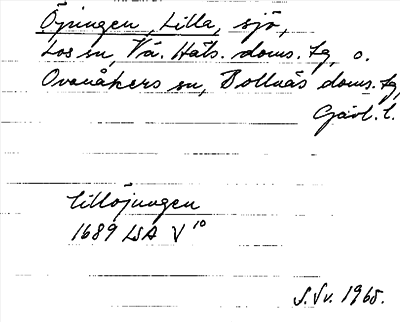 Öjungen, Lilla, sjö,
Los sn, Vä. Häls. doms. tg, o.
Ovanåkers sn, Bollnäs doms. tg,
Gävl. l.
lillöjungen
1689 LSA V 10
S.Sv. 1965.